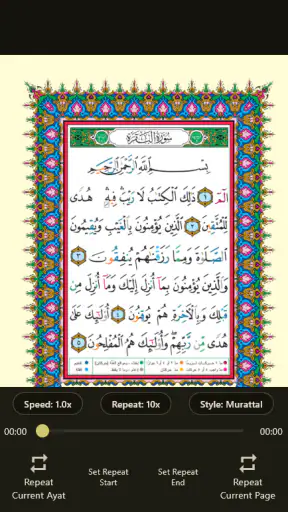 سُورَةُ البَقَرَةِ
بِسْمِ ٱللَّهِ ٱلرَّحْمَٰنِ ٱلرَّحِيمِ
الٓمٓ ١ ذَٰلِكَ ٱلْكِتَٰبُ لَا رَيْبَ فِيهِ هُدًى
لِّلْمُتَّقِينَ ٢ ٱلَّذِينَ يُؤْمِنُونَ بِٱلْغَيْبِ وَيُقِيمُونَ
ٱلصَّلَوٰةَ وَمِمَّا رَزَقْنَٰهُمْ يُنفِقُونَ ٣
وَٱلَّذِينَ يُؤْمِنُونَ بِمَآ أُنزِلَ إِلَيْكَ وَمَآ أُنزِلَ مِن
قَبْلِكَ وَبِٱلْءَاخِرَةِ هُمْ يُوقِنُونَ ٤ أُو۟لَٰٓئِكَ عَلَىٰ
هُدًى مِّن رَّبِّهِمْ وَأُو۟لَٰٓئِكَ هُمُ ٱلْمُفْلِحُونَ ٥
Speed: 1.0x Repeat: 10x Style: Murattal
00:00 00:00
Repeat Current Ayat Set Repeat Start Set Repeat End Repeat Current Page